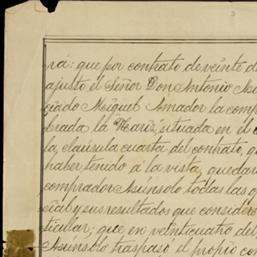 rá: que por contrato de veinte d
ajustó el Señor Don Antonio Asi
ciado Miguel Amador la comp
brada la "María", situada en el
la, cláusula cuarta del contrato, q
haber tenido á la vista, quedar
comprador Asúnsolo todas las o
cial y sus resultados que consider
ticular; que en veinticuatro del
Asúnsolo traspasó el propio con